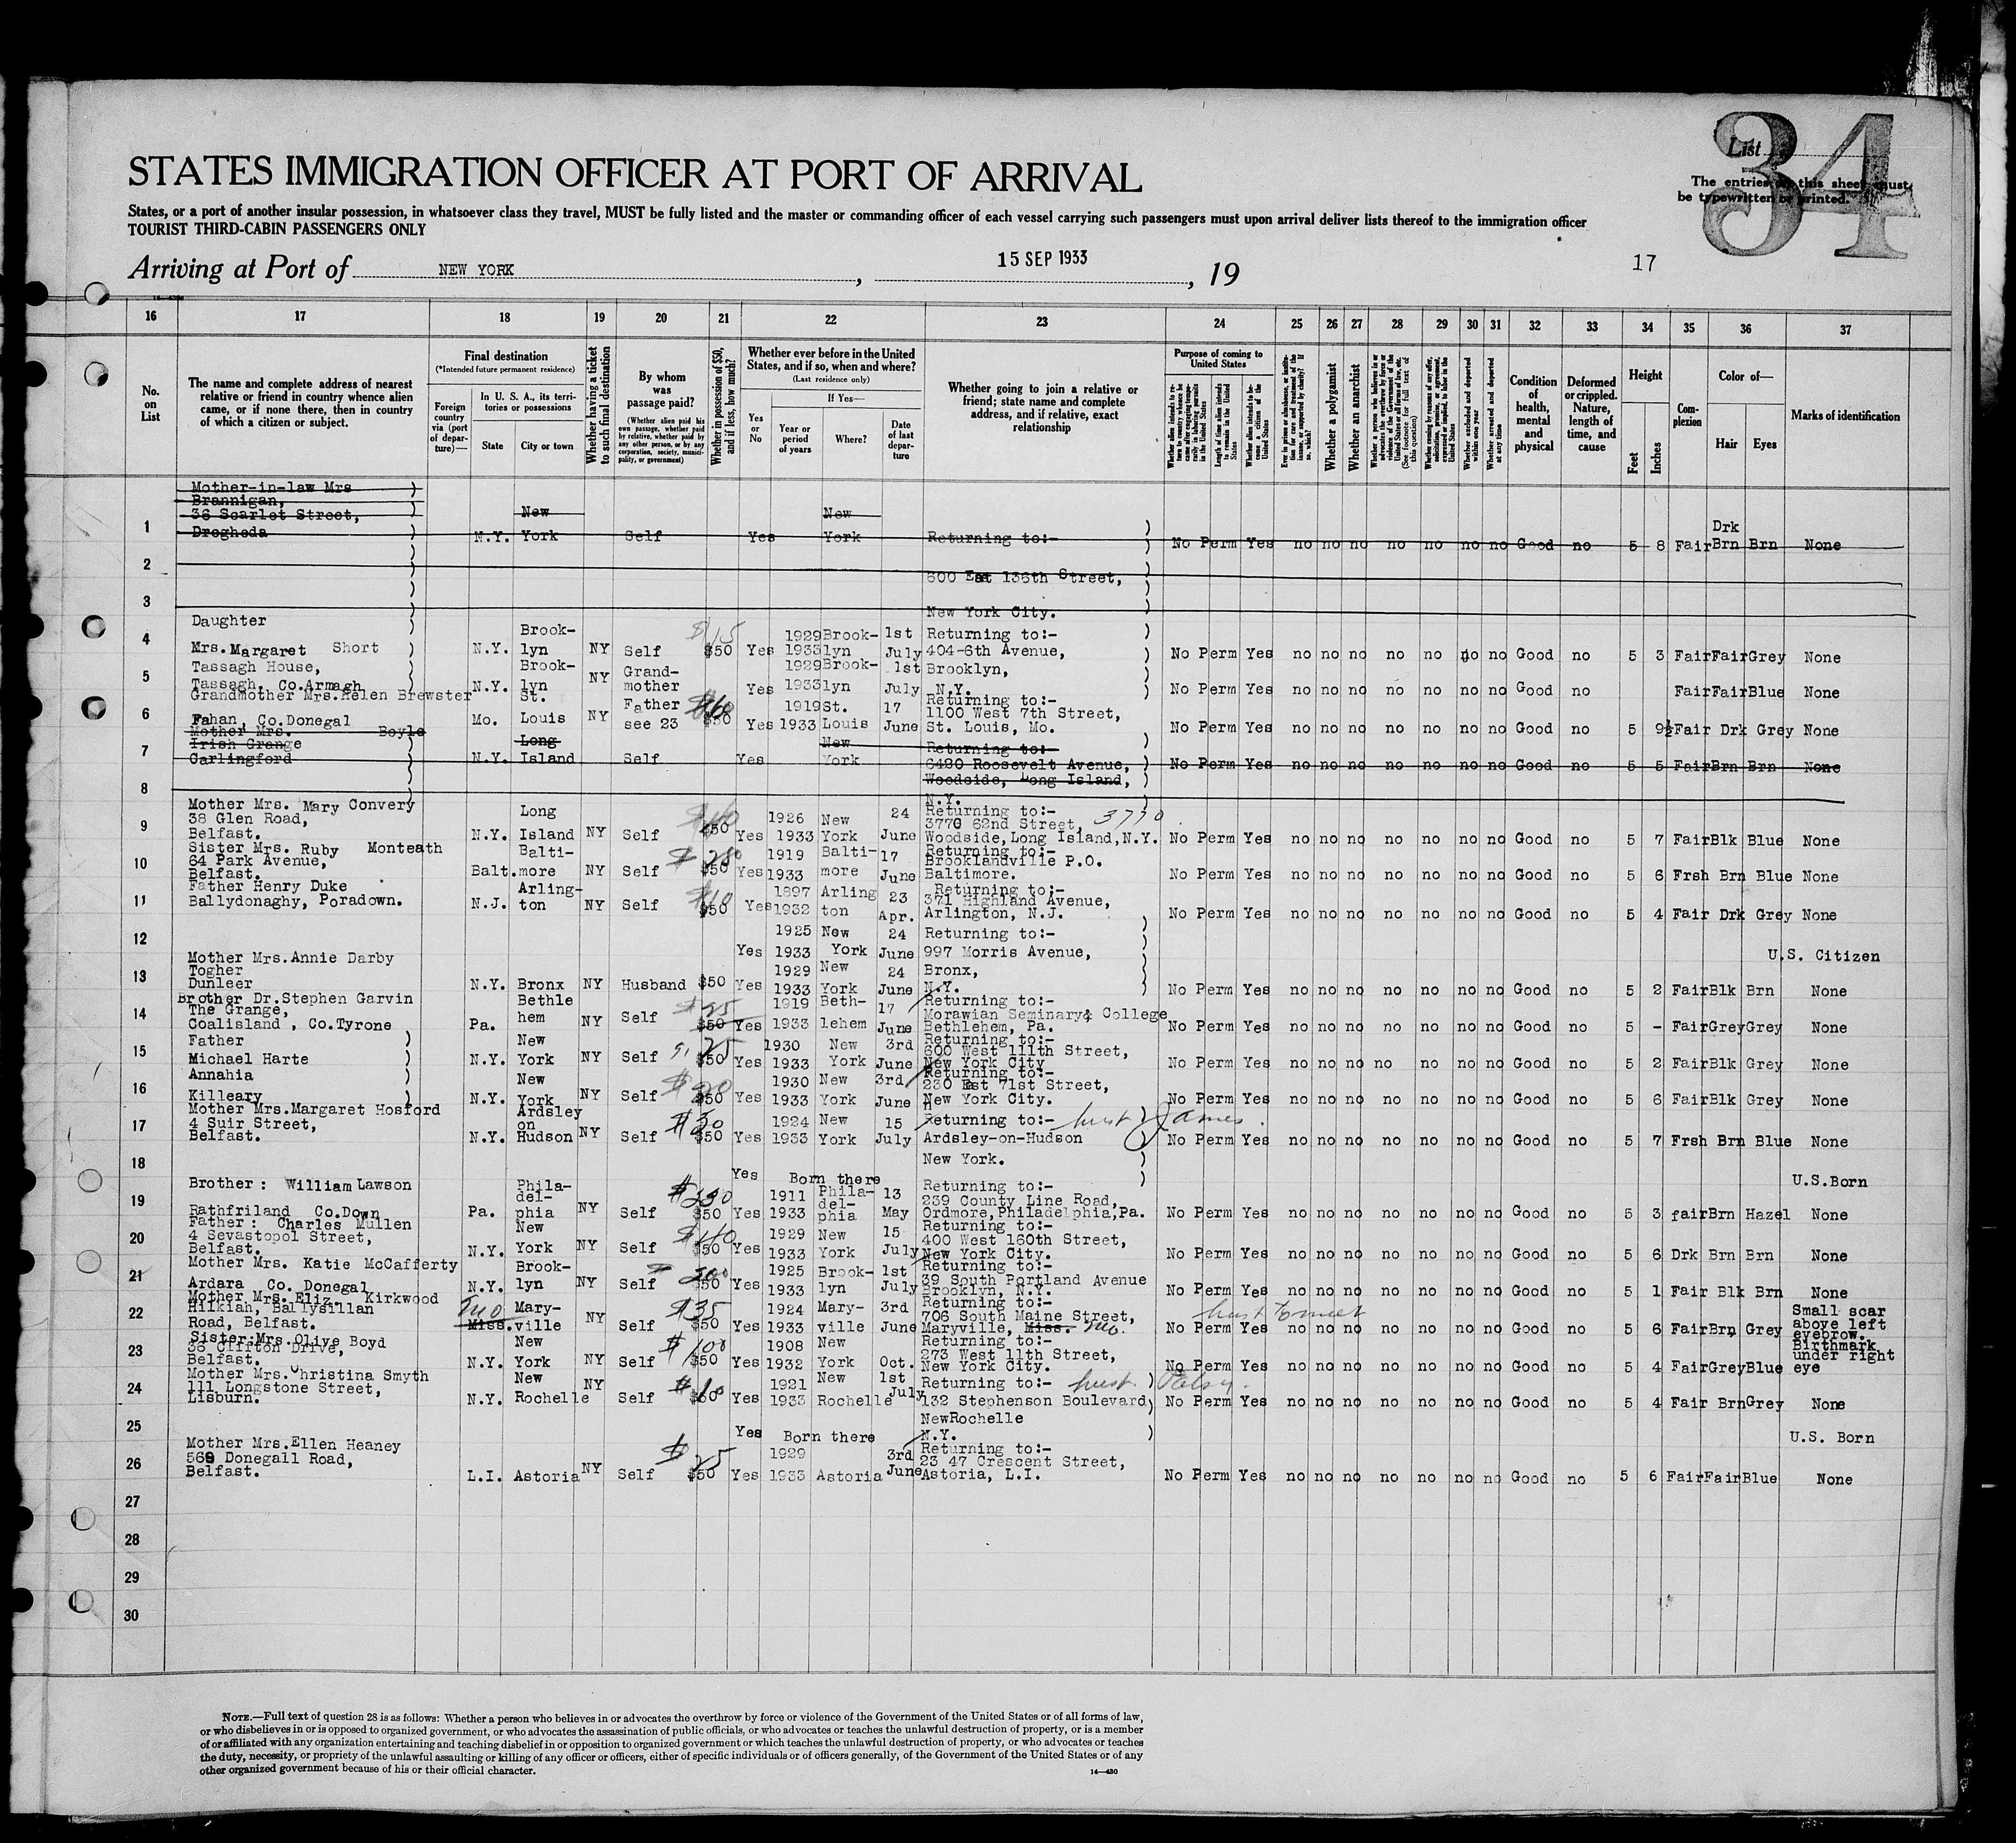 34
List
The entries on this sheet must
be typewritten or printed.
STATES IMMIGRATION OFFICER AT PORT OF ARRIVAL
States, or a port of another insular possession, in whatsoever class they travel, MUST be fully listed and the master or commanding officer of each vessel carrying such passengers must upon arrival deliver lists thereof to the immigration officer
TOURIST THIRD-CABIN PASSENGERS ONLY
Arriving at Port of NEW YORK , 15 SEP 1933 , 19
17
16 17 18 19 20 21 22 23 24 25 26 27 28 29 30 31 32 33 34 35 36 37
No. on List
The name and complete address of nearest relative or friend in country whence alien came, or if none there, then in country of which a citizen or subject.
Final destination
(*Intended future permanent residence)
Foreign country via (port of departure)—
In U. S. A., its territories or possessions
State
City or town
Whether having a ticket to such final destination
By whom was passage paid?
(Whether alien paid his own passage, whether paid by relative, whether paid by any other person, or by any corporation, society, municipality, or government)
Whether in possession of $50, and if less, how much?
Whether ever before in the United States, and if so, when and where?
(Last residence only)
Yes or No
If Yes—
Year or period of years
Where?
Date of last departure
Whether going to join a relative or friend; state name and complete address, and if relative, exact relationship
Purpose of coming to United States
Length of time alien intends to remain in the United States
Whether alien intends to become a citizen of the United States
Whether a polygamist
Whether an anarchist
Whether excluded and deported within one year
Whether arrested and deported at any time
Condition of health, mental and physical
Deformed or crippled. Nature, length of time, and cause
Height
Feet
Inches
Complexion
Color of—
Hair
Eyes
Marks of identification
1 Mother-in-law Mrs Brannigan, 36 Scarlet Street, Drogheda N.Y. New York Self Yes New York Returning to:- No Perm Yes no no no no no no no Good no 5 8 Fair Drk Brn Brn None
2 600 East 136th Street,
3 New York City.
4 Daughter Mrs. Margaret Short N.Y. Brook-lyn NY Self $15 $50 Yes 1929 1933 Brook-lyn 1st July Returning to:- 404-6th Avenue, No Perm Yes no no no no no no no Good no 5 3 Fair Fair Grey None
5 Tassagh House, Tassagh, Co.Armagh N.Y. Brook-lyn NY Grand-mother Yes 1929 1933 Brook-lyn 1st July Brooklyn, N.Y. No Perm Yes no no no no no no no Good no Fair Fair Blue None
6 Grandmother Mrs.Helen Brewster Fahan, Co.Donegal Mo. St. Louis NY Father see 23 $50 Yes 1919 1933 St. Louis 17 June Returning to:- 1100 West 7th Street, St. Louis, Mo. No Perm Yes no no no no no no no Good no 5 9½ Fair Drk Grey None
7 Mother Mrs. Boyle Irish Grange Carlingford N.Y. Long Island Self Yes New York Returning to:- 6420 Roosevelt Avenue, No Perm Yes no no no no no no no Good no 5 5 Fair Brn Brn None
8 Woodside, Long Island, N.Y.
9 Mother Mrs. Mary Convery 38 Glen Road, Belfast. N.Y. Long Island NY Self $50 Yes 1926 1933 New York 24 June Returning to:- 3770 62nd Street, 3770 Woodside, Long Island, N.Y. No Perm Yes no no no no no no no Good no 5 7 Fair Blk Blue None
10 Sister Mrs. Ruby Monteath 64 Park Avenue, Belfast. Balt. Balti-more NY Self $50 Yes 1919 1933 Balti-more 17 June Returning to:- Brooklandville P.O. Baltimore. No Perm Yes no no no no no no no Good no 5 6 Frsh Brn Blue None
11 Father Henry Duke Ballydonaghy, Poradown. N.J. Arling-ton NY Self $50 Yes 1897 1932 Arling ton 23 Apr. Returning to:- 371 Highland Avenue, Arlington, N.J. No Perm Yes no no no no no no no Good no 5 4 Fair Drk Grey None
12 Yes 1925 1933 New York 24 June Returning to:- 997 Morris Avenue, U.S. Citizen
13 Mother Mrs.Annie Darby Togher Dunleer N.Y. Bronx NY Husband $50 Yes 1929 1933 New York 24 June Bronx, N.Y. No Perm Yes no no no no no no no Good no 5 2 Fair Blk Brn None
14 Brother Dr.Stephen Garvin The Grange, Coalisland, Co.Tyrone Pa. Bethle hem NY Self $50 Yes 1919 1933 Beth-lehem 17 June Returning to:- Morawian Seminary & College Bethlehem, Pa. No Perm Yes no no no no no no no Good no 5 - Fair Grey Grey None
15 Father Michael Harte N.Y. New York NY Self 25 $50 Yes 1930 1933 New York 3rd June Returning to:- 600 West 111th Street, New York City No Perm Yes no no no no no no no Good no 5 2 Fair Blk Grey None
16 Annahia Killeary N.Y. New York NY Self $50 Yes 1930 1933 New York 3rd June Returning to:- 230 East 71st Street, New York City. No Perm Yes no no no no no no no Good no 5 6 Fair Blk Grey None
17 Mother Mrs.Margaret Hosford 4 Suir Street, Belfast. N.Y. Ardsley on Hudson NY Self $50 Yes 1924 1933 New York 15 July Returning to:- James Ardsley-on-Hudson No Perm Yes no no no no no no no Good no 5 7 Frsh Brn Blue None
18 Yes Born there New York. U.S.Born
19 Brother: William Lawson Rathfriland Co.Down Pa. Phila-del-phia NY Self $50 Yes 1911 1933 Phila-del-phia 13 May Returning to:- 239 County Line Road, Ordmore, Philadelphia, Pa. No Perm Yes no no no no no no no Good no 5 3 fair Brn Hazel None
20 Father: Charles Mullen 4 Sevastopol Street, Belfast. N.Y. New York NY Self $50 Yes 1929 1933 New York 15 July Returning to:- 400 West 160th Street, New York City. No Perm Yes no no no no no no no Good no 5 6 Drk Brn Brn None
21 Mother Mrs. Katie McCafferty Ardara Co. Donegal N.Y. Brook-lyn NY Self $50 Yes 1925 1933 Brook-lyn 1st July Returning to:- 39 South Portland Avenue Brooklyn, N.Y. No Perm Yes no no no no no no no Good no 5 1 Fair Blk Brn None
22 Mother Mrs. Eliz. Kirkwood Hilkiah, Ballysillan Road, Belfast. Mo Miss. Mary-ville NY Self $35 $50 Yes 1924 1933 Mary-ville 3rd June Returning to:- 706 South Maine Street, Maryville, Miss. Mo. No Perm Yes no no no no no no no Good no 5 6 Fair Brn Grey Small scar above left eyebrow.
23 Sister:Mrs.Olive Boyd 36 Cliffton Drive, Belfast. N.Y. New York NY Self $100 $50 Yes 1908 1932 New York Oct. Returning to:- 273 West 11th Street, New York City. No Perm Yes no no no no no no no Good no 5 4 Fair Grey Blue Birthmark under right eye
24 Mother Mrs. Christina Smyth 111 Longstone Street, Lisburn. N.Y. New Rochelle NY Self $50 Yes 1921 1933 New Rochelle 1st July Returning to:- 132 Stephenson Boulevard No Perm Yes no no no no no no no Good no 5 4 Fair Brn Grey None
25 Yes Born there NewRochelle N.Y. U.S. Born
26 Mother Mrs.Ellen Heaney 569 Donegall Road, Belfast. L.I. Astoria NY Self $50 Yes 1929 1933 Astoria 3rd June Returning to:- 23 47 Crescent Street, Astoria, L.I. No Perm Yes no no no no no no no Good no 5 6 Fair Fair Blue None
27
28
29
30
NOTE.—Full text of question 28 is as follows: Whether a person who believes in or advocates the overthrow by force or violence of the Government of the United States or of all forms of law,
or who disbelieves in or is opposed to organized government, or who advocates the assassination of public officials, or who advocates or teaches the unlawful destruction of property, or is a member
of or affiliated with any organization entertaining and teaching disbelief in or opposition to organized government or which teaches the unlawful destruction of property, or who advocates or teaches
the duty, necessity, or propriety of the unlawful assaulting or killing of any officer or officers, either of specific individuals or of officers generally, of the Government of the United States or of any
other organized government because of his or their official character.
14—430